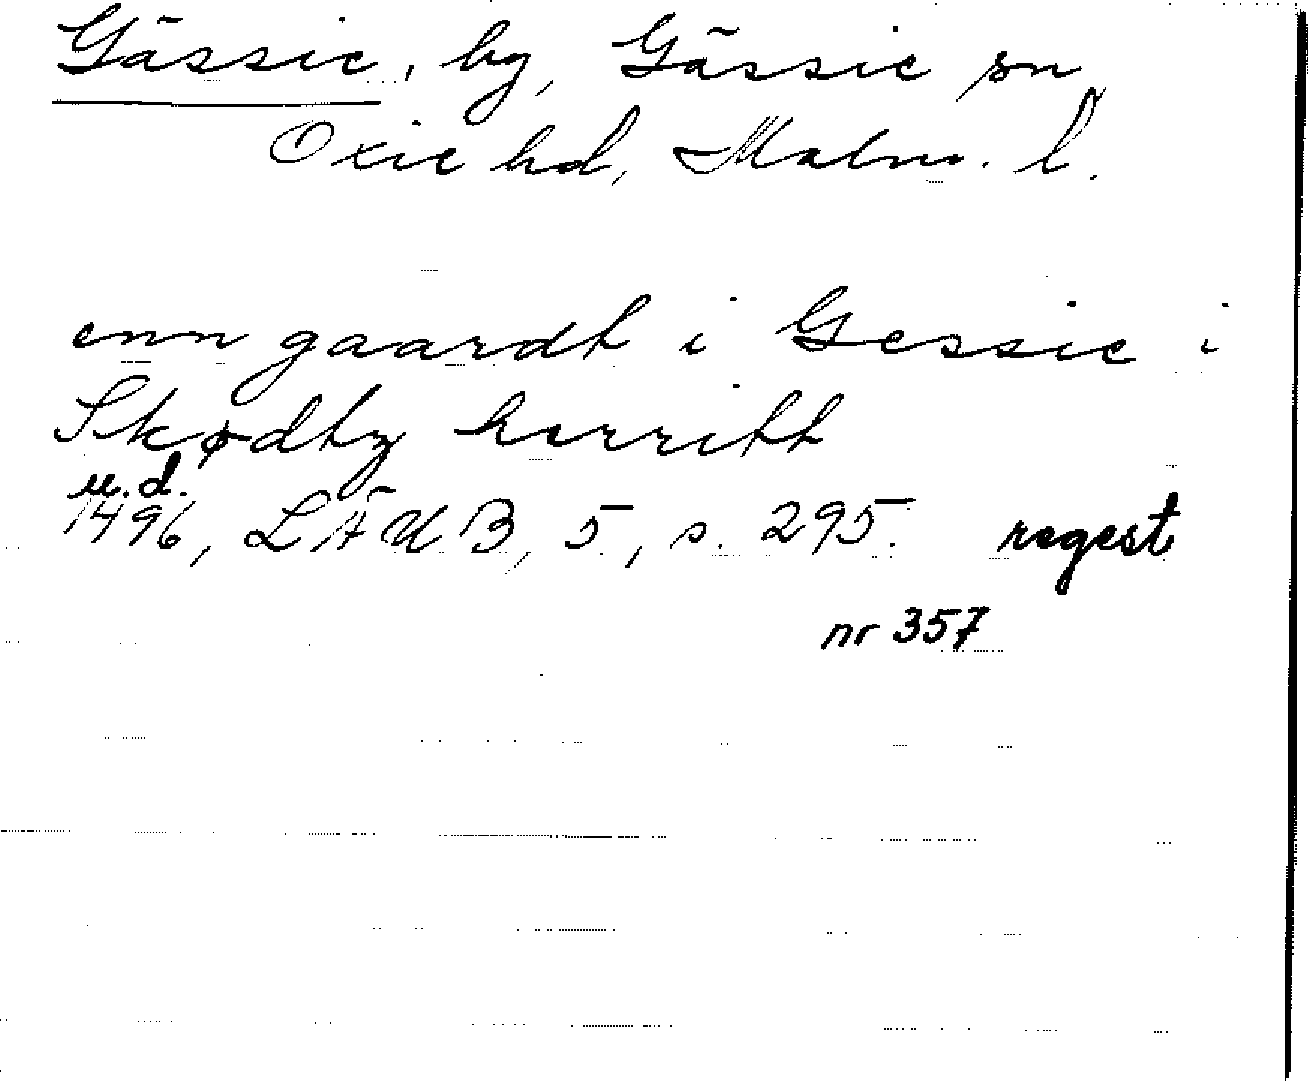 Gässie, by, Gässie sn
Oxie hd, Malm. l.
enn gaardt i Gessie i
Skødtzy herritt
u.d.
1496, LÄUB, 5, s. 295. regest
nr 357